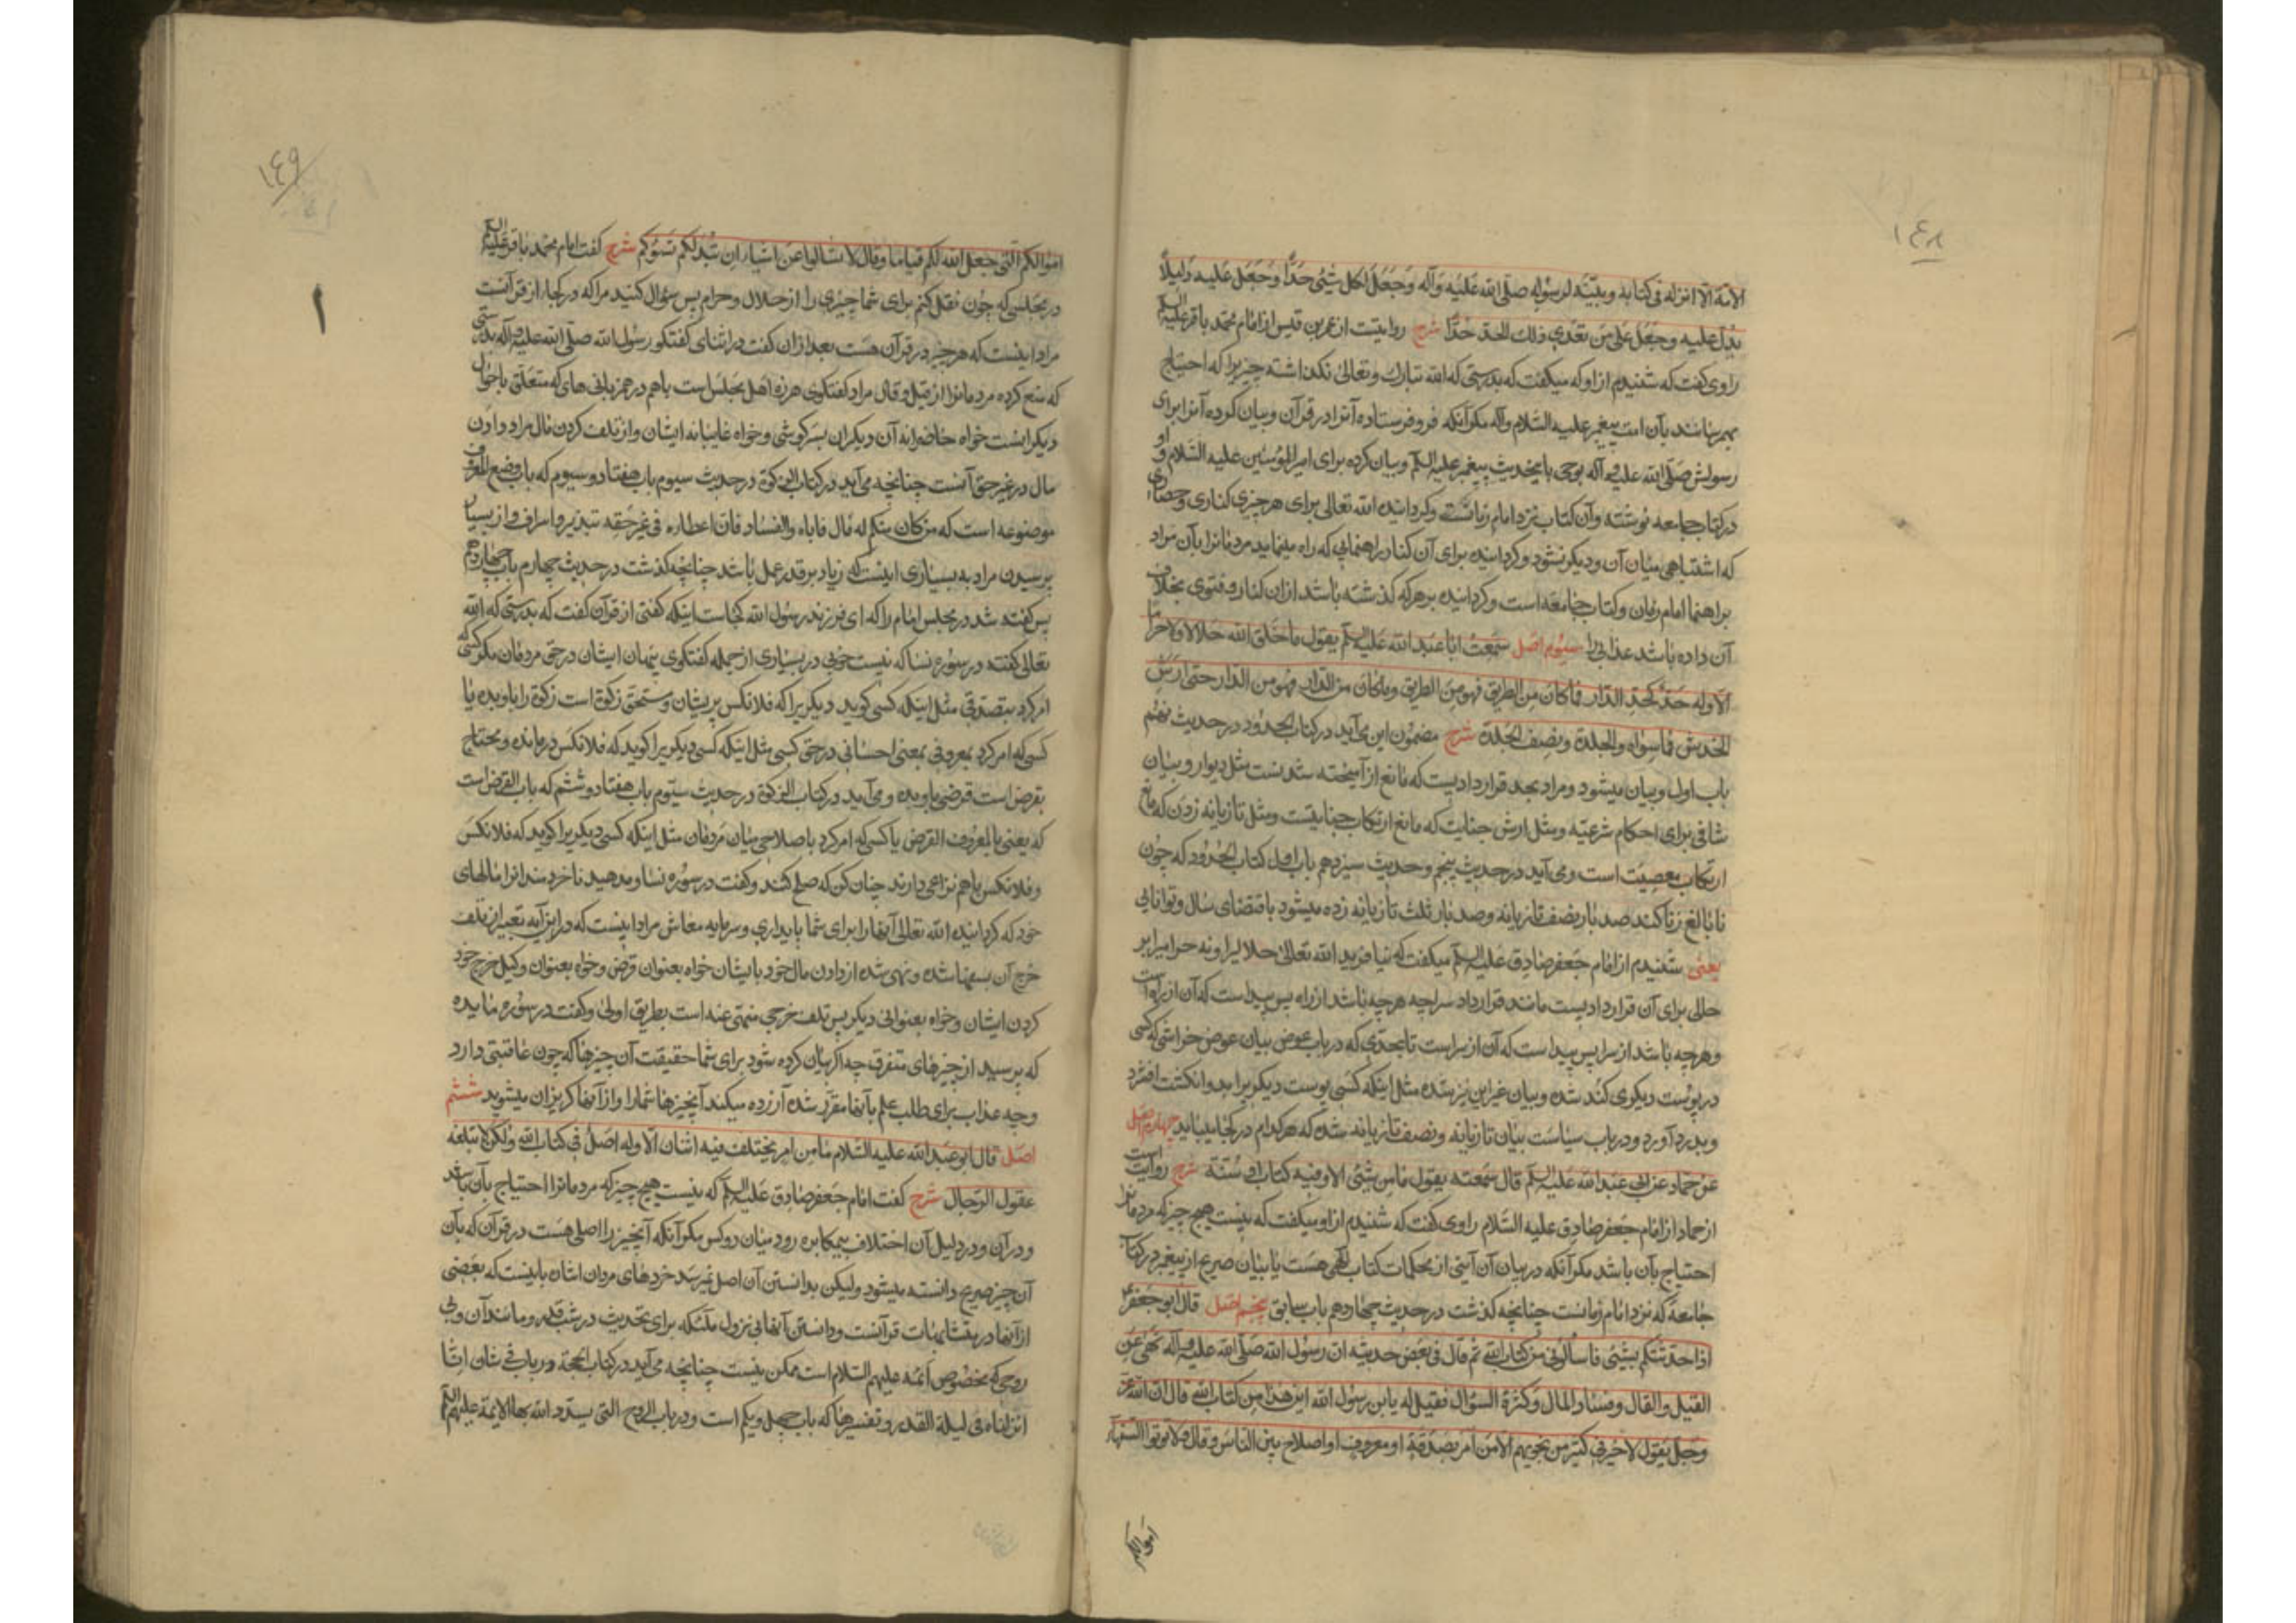 ١٤٨
الامة الا انزله فی کتابه وبینه لرسوله صلی الله علیه وآله وجعل لکل شیئ حدا وجعل علیه دلیلا
یدل علیه وجعل علی من تعدی ذلک الحد حدا شرح روایتست از عمر بن قیس از امام محمد باقر علیه السلم
راوی گفت که شنیدم از او که میگفت که بدرستی که الله تبارک وتعالی نگذاشته چیزیرا که احتیاج
بهم رسانند بآن امت پیغمبر علیه السلام وآله مگر آنکه فرو فرستاده آنرا در قرآن وبیان کرده آنرا برای
رسولش صلی الله علیه وآله بوحی یا بحدیث پیغمبر علیه السلم وبیان کرده برای امیر المؤمنین علیه السلام و او
در کتاب جامعه نوشته وآن کتاب نزد امام زمانست وگردانیده الله تعالی برای هر چیزی کناری وحصاری
که اشتباهی میان آن ودیگر نشود وگردانیده برای آن کنار راهنمایی که راه مینماید مردمانرا بآن مراد
براهنما امام زمان وکتاب جامعه است وگردانیده بر هرکه گذشته باشد از آن کنار وفتوی بخلاف
آن داده باشد عذابی را سیوم اصل سمعت ابا عبد الله علیه السلم یقول ما خلق الله حلالا ولا حراما
الا وله حد کحد الدار فما کان من الطریق فهو من الطریق وما کان من الدار فهو من الدار حتی ارش
الخدش فما سواه والجلدة ونصف الجلدة شرح مضمون این می آید در کتاب الحدود در حدیث نهم
باب اول وبیان میشود ومراد بحد قراردادیست که مانع از آمیخته شدنست مثل دیوار وبیان
شافی برای احکام شرعیه ومثل ارش جنایت که مانع ارتکاب جنایتست ومثل تازیانه زدن که مانع
ارتکاب معصیت است ومی آید در حدیث پنجم وحدیث سیزدهم باب اول کتاب الحدود که چون
نابالغ زنا کند صد بار بنصف تازیانه وصد بار ثلث تازیانه زده میشود باقتضای سال وتوانایی
یعنی شنیدم از امام جعفر صادق علیه السلم میگفت که نیافرید الله تعالی حلالیرا ونه حرامیرا بر
حالی برای آن قراردادیست مانند قرارداد سراچه هرچه باشد از راه پس پیداست که آن از راه است
وهرچه باشد از سرا پس پیداست که آن از سراست تا بحدی که در باب عوض بیان عوض خراشی که کسی
در پوست دیگری کند شده وبیان غیر این نیز شده مثل اینکه کسی پوست دیگریرا بدو انگشت افشرد
وبدرد آورد ودر باب سیاست بیان تازیانه ونصف تازیانه شده که هرکدام در کجا میباید چهارم اصل
عن حماد عن ابی عبد الله علیه السلم قال سمعته یقول ما من شیئ الا وفیه کتاب او سنة شرح روایت است
از حماد از امام جعفر صادق علیه السلام راوی گفت که شنیدم از او میگفت که نیست هیچ چیز که مردمانرا
احتیاج بآن باشد مگر آنکه در بیان آن آیتی از محکمات کتاب الهی هست یا بیان صریح از پیغمبر در کتاب
جامعة که نزد امام زمانست چنانچه گذشت در حدیث چهاردهم باب سابق پنجم اصل قال ابو جعفر ع
اذا حدثتکم بشیئ فاسألونی من کتاب الله ثم قال فی بعض حدیثه ان رسول الله صلی الله علیه وآله نهی عن
القیل والقال وفساد المال وکثرة السؤال فقیل له یا بن رسول الله این هذا من کتاب الله قال ان الله عز
وجل یقول لا خیر فی کثیر من نجویهم الا من امر بصدقة او معروف او اصلاح بین الناس وقال فلا تؤتوا السفهاء
اموالکم
١٤٩
اموالکم التی جعل الله لکم قیاما وقال لا تسألوا عن اشیاء ان تبد لکم تسؤکم شرح گفت امام محمد باقر علیه السلم
در مجلسی که چون نقل کنم برای شما چیزی را از حلال وحرام پس سؤال کنید مرا که در کجا از قرآنست
مراد اینست که هرچیز در قرآن هست بعد از آن گفت در اثنای گفتگو رسول الله صلی الله علیه وآله بدرستی
که منع کرده مردمانرا از قیل وقال مراد گفتگوی هرزه اهل مجلس است باهم در همزبانی های که متعلق باحوال
دیگرانست خواه حاضرانه آن دیگران بسرگوشی وخواه غایبانه ایشان واز تلف کردن مال مراد دادن
مال در غیر حق آنست چنانچه می آید در کتاب الزکوة در حدیث سیوم باب هفتاد وسیوم که باب وضع المعروف
موضوعه است که من کان منکم له مال فایاه والفساد فان اعطاءه فی غیر حقه تبذیر واسراف واز بسیار
پرسیدن مراد به بسیاری اینست که زیاد بر قدر عمل باشد چنانچه گذشت در حدیث چهارم باب چهاردهم
پس گفته شد در مجلس امام را که ای فرزند رسول الله کجاست اینکه گفتی از قرآن گفت که بدرستی که الله
تعالی گفته در سوره نسا که نیست خوبی در بسیاری از جمله گفتگوی پنهان ایشان در حق مردمان مگر کسی که
امر کرد بتصدقی مثل اینکه کسی گوید دیگریرا که فلانکس پریشان ومستحق زکوة است زکوة را باو بده یا
کسی که امر کرد بمعروفی بمعنی احسانی در حق کسی مثل اینکه کسی دیگریرا گوید که فلانکس درمانده ومحتاج
بقرض است قرضی باو بده ومی آید در کتاب الزکوة در حدیث سیوم باب هفتاد وششم که باب القرض است
که یعنی بالمعروف القرض یا کسی که امر کرد باصلاحی میان مردمان مثل اینکه کسی دیگریرا گوید که فلانکس
وفلانکس باهم نزاعی دارند چنان کن که صلح کنند وگفت در سوره نسا ومدهید ناخردمندانرا مالهای
خود که گردانیده الله تعالی آنها را برای شما پایداری وسرمایه معاش مراد اینست که در این آیه تعبیر از تلف
خرج آن بسفها شده ونهی شده از دادن مال خود بایشان خواه بعنوان قرض وخواه بعنوان وکیل خرج خود
کردن ایشان وخواه بعنوانی دیگر پس تلف خرجی منهی عنه است بطریق اولی وگفت در سوره مایده
که پرسید از چیزهای متفرق چه اگر بیان کرده شود برای شما حقیقت آن چیزها که چون عاقبتی دارد
وچه عذاب برای طلب علم بآنها مقرر شده آزرده میکند آنچیزها شما را واز آنها گریزان میشوید ششم
اصل قال ابو عبد الله علیه السلام ما من امر یختلف فیه اثنان الا وله اصل فی کتاب الله ولکن لا تبلغه
عقول الرجال شرح گفت امام جعفر صادق علیه السلم که نیست هیچ چیز که مردمانرا احتیاج بآن باشد
ودر آن ودر دلیل آن اختلاف بیمکابره رود میان دو کس مگر آنکه آنچیز را اصلی هست در قرآن که بآن
آن چیز صریح دانسته میشود ولیکن بدانستن آن اصل نمیرسد خردهای مردان اشاره باینست که بعضی
از آنها در متشابهات قرآنست ودانستن آنها بی نزول ملئکه برای تحدیث در شب قدر ومانند آن وبی
روحی که مخصوص ائمه علیهم السلام است ممکن نیست چنانچه می آید در کتاب الحجة در باب فی شان انا
انزلناه فی لیلة القدر وتفسیرها که باب چهل ویکم است ودر باب الروح التی یسدد الله بها الایمة علیهم السلم